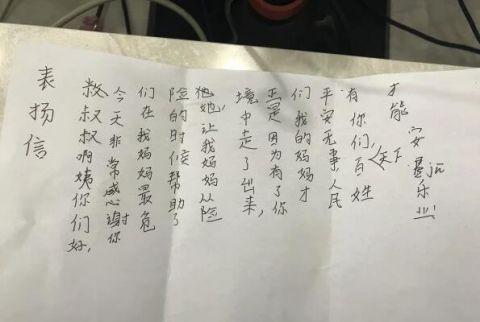 表扬信
叔叔啊姨你们好,
今天非常感谢你
们在我妈妈最危
险的时候帮助了
她,让我妈妈从险
境中走了出来,
正是因为有了你
们我的妈妈才
平安无事,人民
有你们,天下百姓
才能
安居乐业